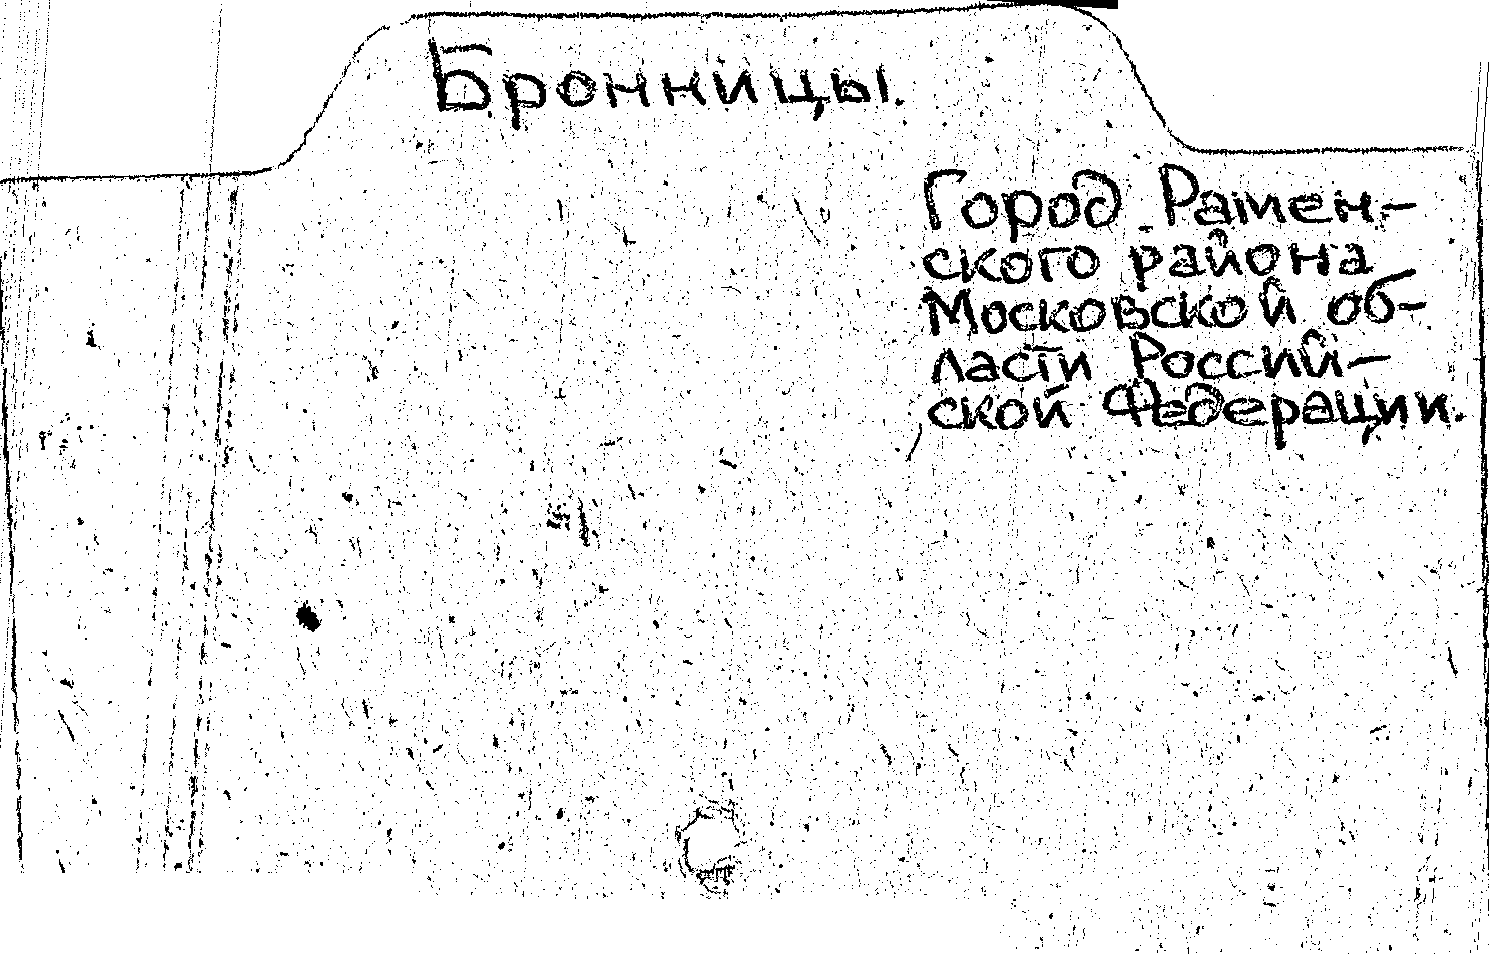 Бронницы.
Город Рамен-
ского района
Московской об-
ласти Россий-
ской Федерации.